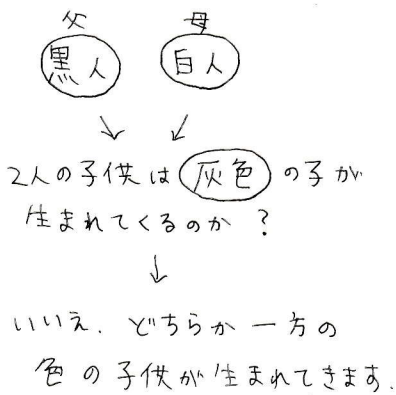 父 母
黒人 白人
2人の子供は 灰色 の子が
生まれてくるのか?
いいえ. どちらか一方の
色の子供が生まれてきます.